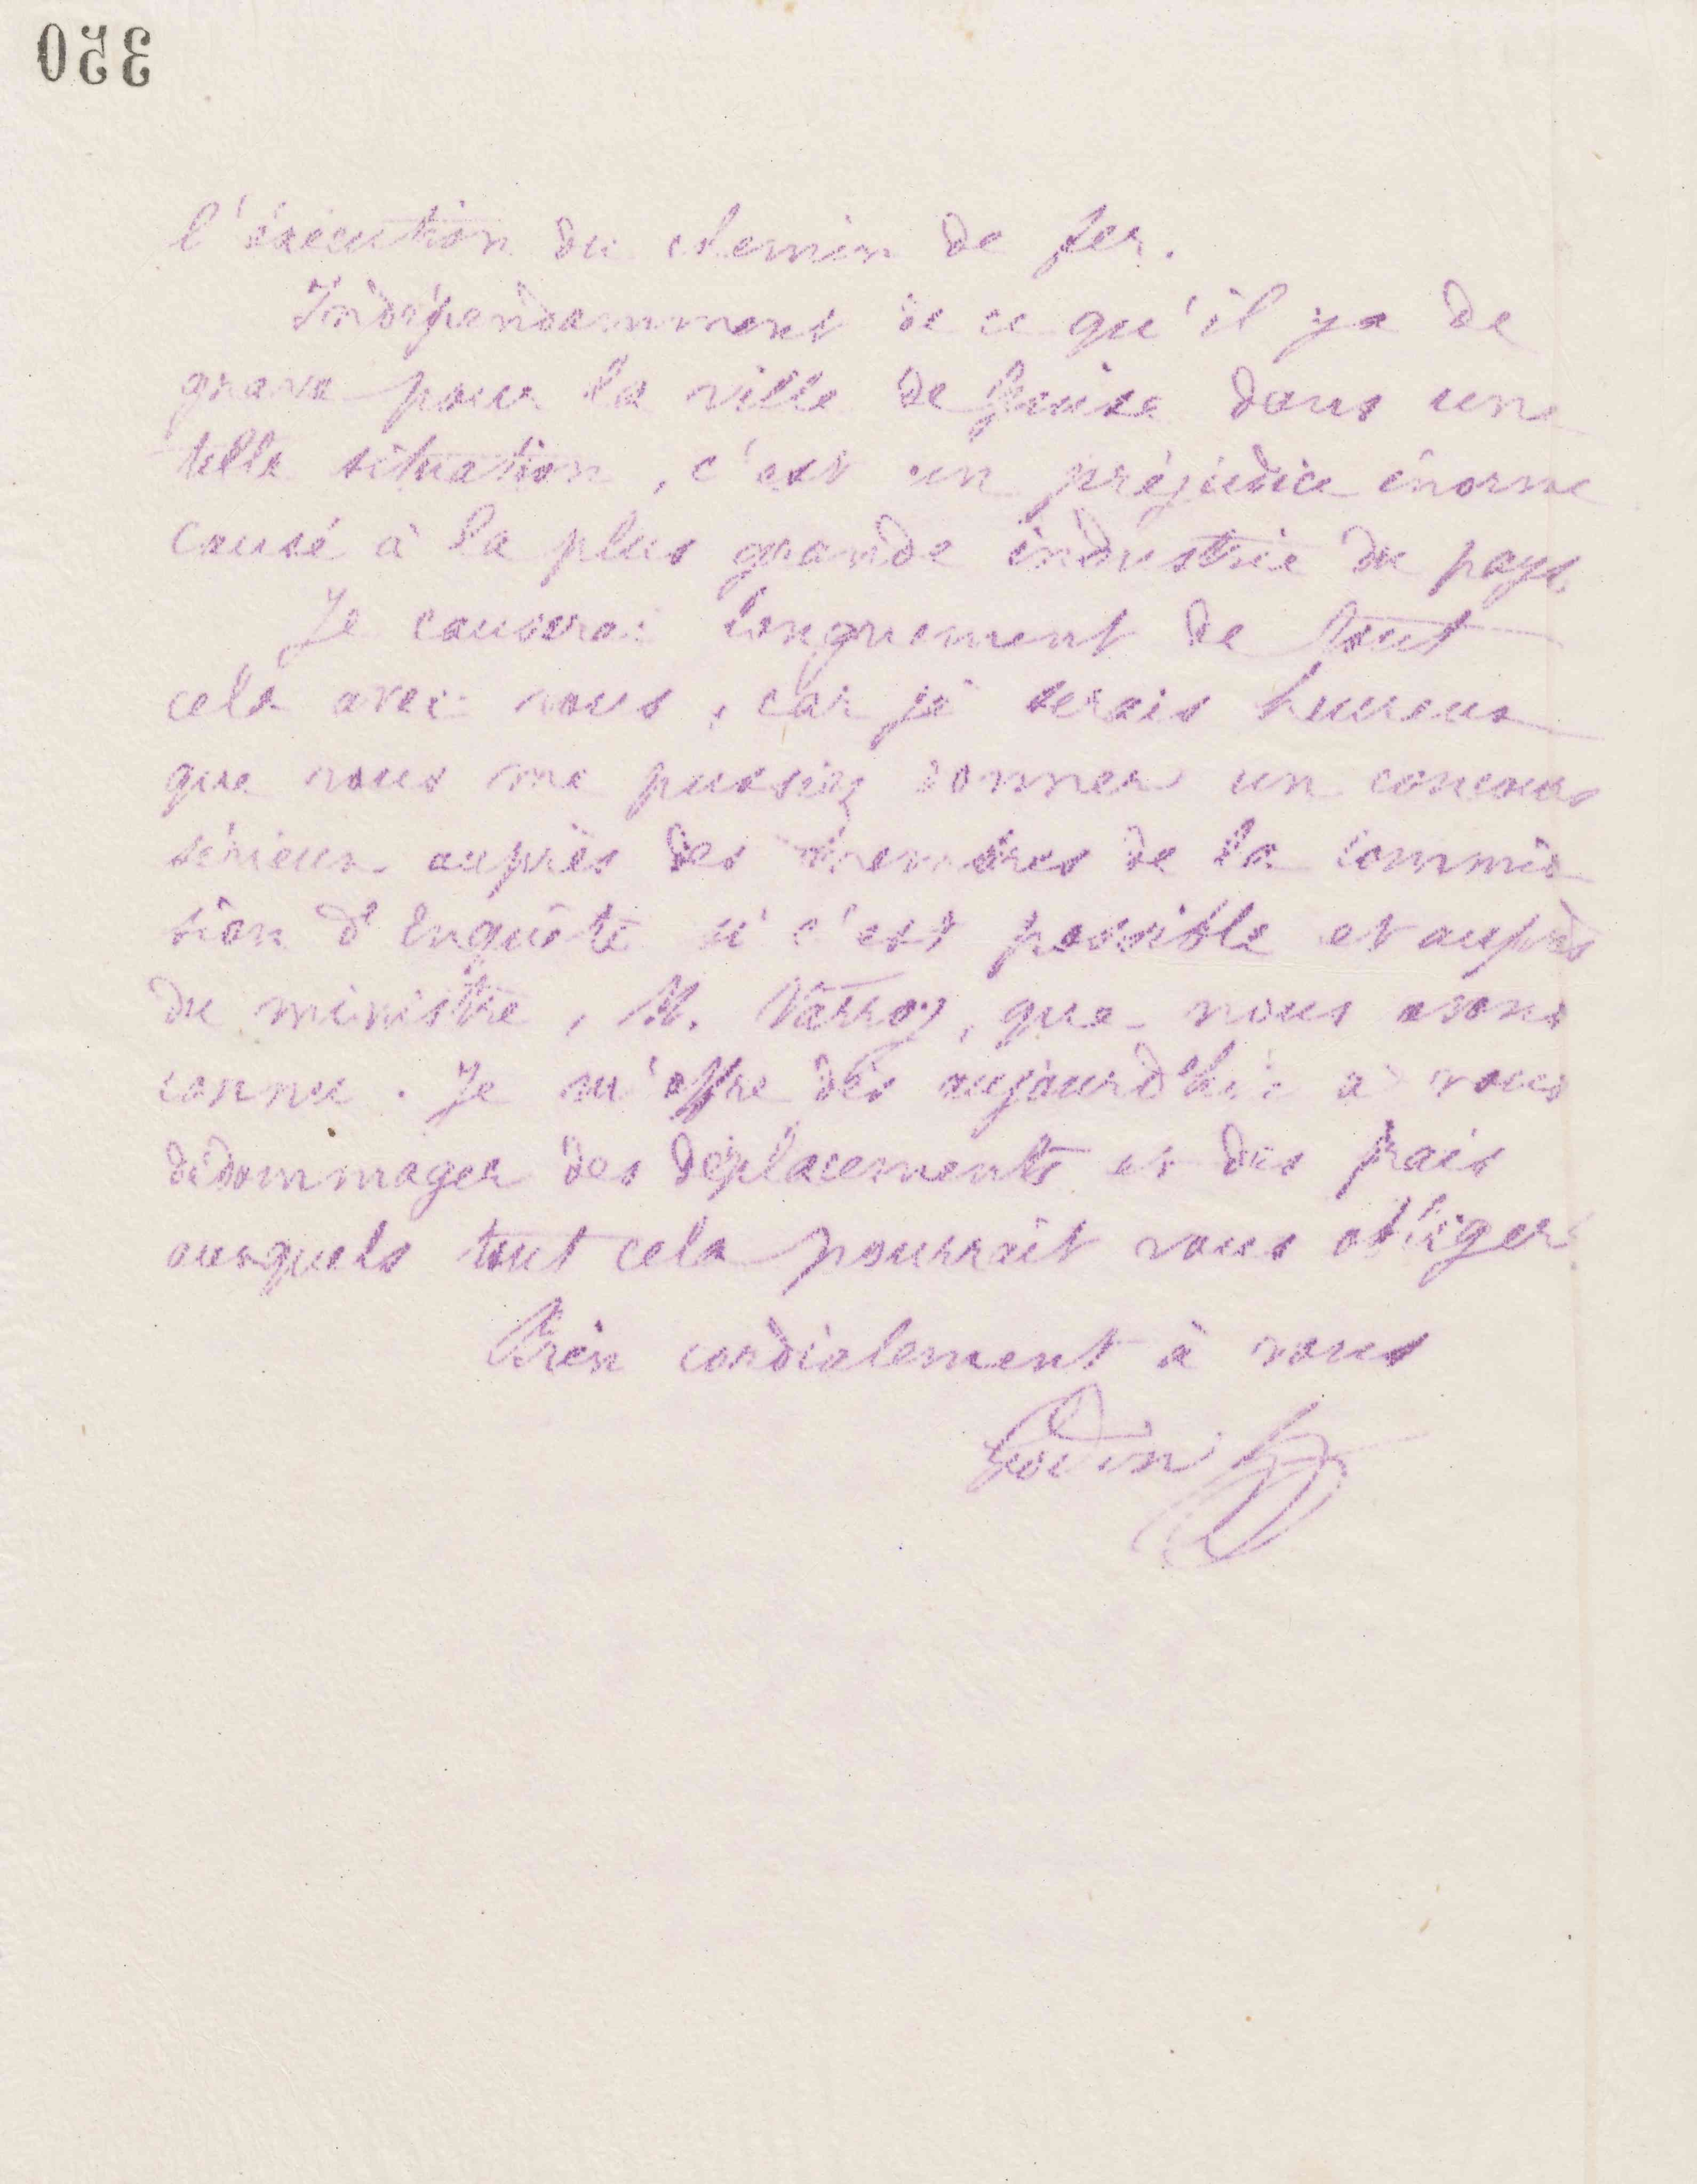 350
l'exécution du chemin de fer.
Indépendamment de ce qu'il y a de
grave pour la ville de Guise dans une
telle situation, c'est un préjudice énorme
causé à la plus grande industrie du pays.
Je causerai longuement de tout
cela avec vous, car je serais heureux
que vous me pussiez donner un concours
sérieux auprès des membres de la commis
sion d'Enquête si c'est possible et auprès
du ministre, M. Varroy, que nous avons
connu. Je m'offre dès aujourd'hui à vous
dédommager des déplacements et des frais
auxquels tout cela pourrait vous obliger.
Bien cordialement à vous
Godin